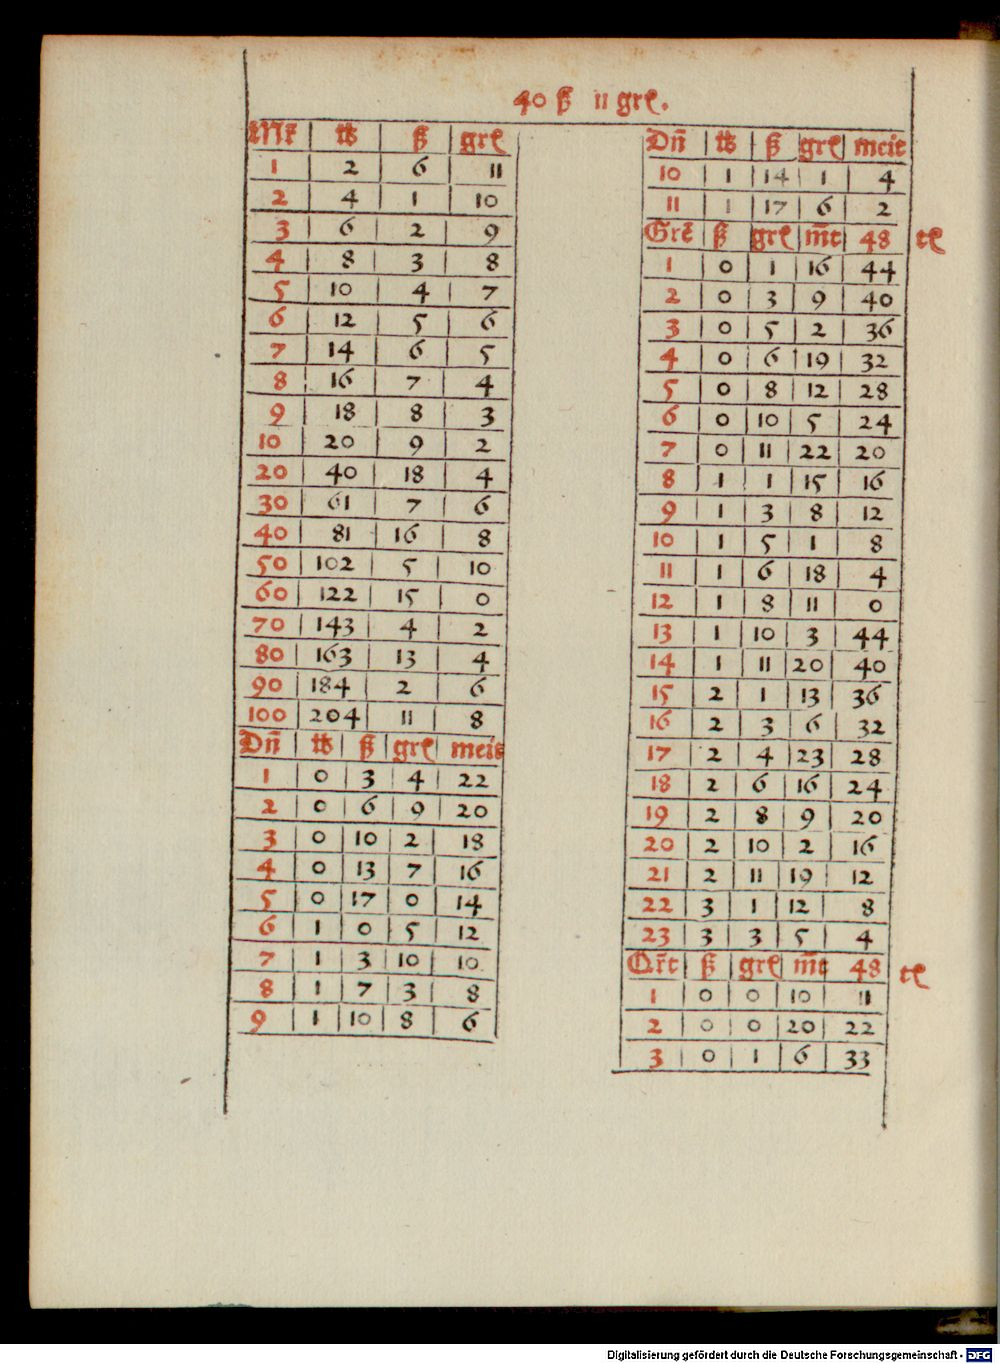 40 ß 11 grꝭ.
Mr̃ | tb | ß | grꝭ
1 | 2 | 6 | 11
2 | 4 | 1 | 10
3 | 6 | 2 | 9
4 | 8 | 3 | 8
5 | 10 | 4 | 7
6 | 12 | 5 | 6
7 | 14 | 6 | 5
8 | 16 | 7 | 4
9 | 18 | 8 | 3
10 | 20 | 9 | 2
20 | 40 | 18 | 4
30 | 61 | 7 | 6
40 | 81 | 16 | 8
50 | 102 | 5 | 10
60 | 122 | 15 | 0
70 | 143 | 4 | 2
80 | 163 | 13 | 4
90 | 184 | 2 | 6
100 | 204 | 11 | 8
Dñ | tb | ß | grꝭ | meis
1 | 0 | 3 | 4 | 22
2 | 0 | 6 | 9 | 20
3 | 0 | 10 | 2 | 18
4 | 0 | 13 | 7 | 16
5 | 0 | 17 | 0 | 14
6 | 1 | 0 | 5 | 12
7 | 1 | 3 | 10 | 10
8 | 1 | 7 | 3 | 8
9 | 1 | 10 | 8 | 6
Dñ | tb | ß | grꝭ | meit
10 | 1 | 14 | 1 | 4
11 | 1 | 17 | 6 | 2
Grẽ | ß | grꝭ | m̃t | 48 | tꝭ
1 | 0 | 1 | 16 | 44
2 | 0 | 3 | 9 | 40
3 | 0 | 5 | 2 | 36
4 | 0 | 6 | 19 | 32
5 | 0 | 8 | 12 | 28
6 | 0 | 10 | 5 | 24
7 | 0 | 11 | 22 | 20
8 | 1 | 1 | 15 | 16
9 | 1 | 3 | 8 | 12
10 | 1 | 5 | 1 | 8
11 | 1 | 6 | 18 | 4
12 | 1 | 8 | 11 | 0
13 | 1 | 10 | 3 | 44
14 | 1 | 11 | 20 | 40
15 | 2 | 1 | 13 | 36
16 | 2 | 3 | 6 | 32
17 | 2 | 4 | 23 | 28
18 | 2 | 6 | 16 | 24
19 | 2 | 8 | 9 | 20
20 | 2 | 10 | 2 | 16
21 | 2 | 11 | 19 | 12
22 | 3 | 1 | 12 | 8
23 | 3 | 3 | 5 | 4
Qr̃t | ß | grꝭ | m̃t | 48 | tꝭ
1 | 0 | 0 | 10 | 11
2 | 0 | 0 | 20 | 22
3 | 0 | 1 | 6 | 33
Digitalisierung gefördert durch die Deutsche Forschungsgemeinschaft - DFG